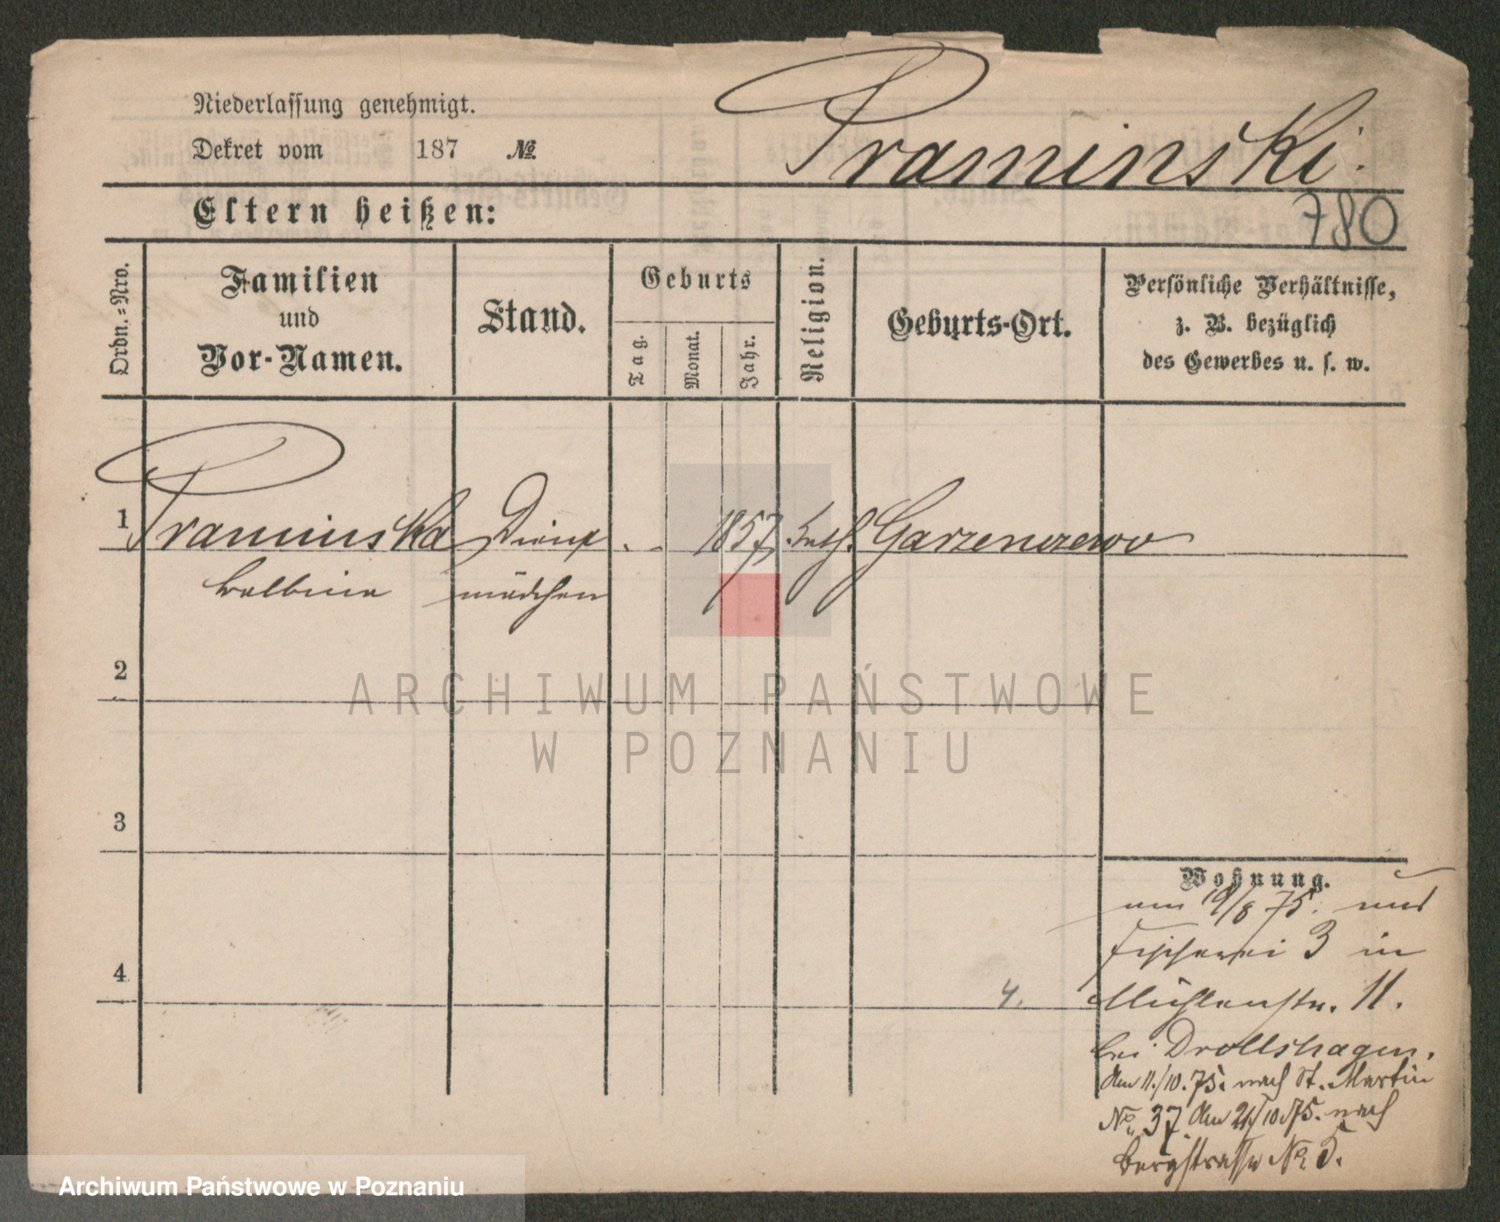 Niederlassung genehmigt.
Dekret vom 187 №
Praminski.
Eltern heißen:
780
Ordn.-Nro.
Familien
und
Vor-Namen.
Stand.
Geburts
Tag.
Monat.
Jahr.
Religion.
Geburts-Ort.
Persönliche Verhältnisse,
z. B. bezüglich
des Gewerbes u. s. w.
1 Praminska Dienst 1857 kath. Garzenczewo
Balbina mädchen
2
ARCHIWUM PAŃSTWOWE
W POZNANIU
3
Wohnung.
am 19/8 75. aus
Fischerei 3 in
4
4. Mühlenstr. 11.
bei Drollshagen.
Am 11./10.75. nach St. Martin
No. 37 Am 21/10 75. nach
Bergstrasse No. 5.
Archiwum Państwowe w Poznaniu